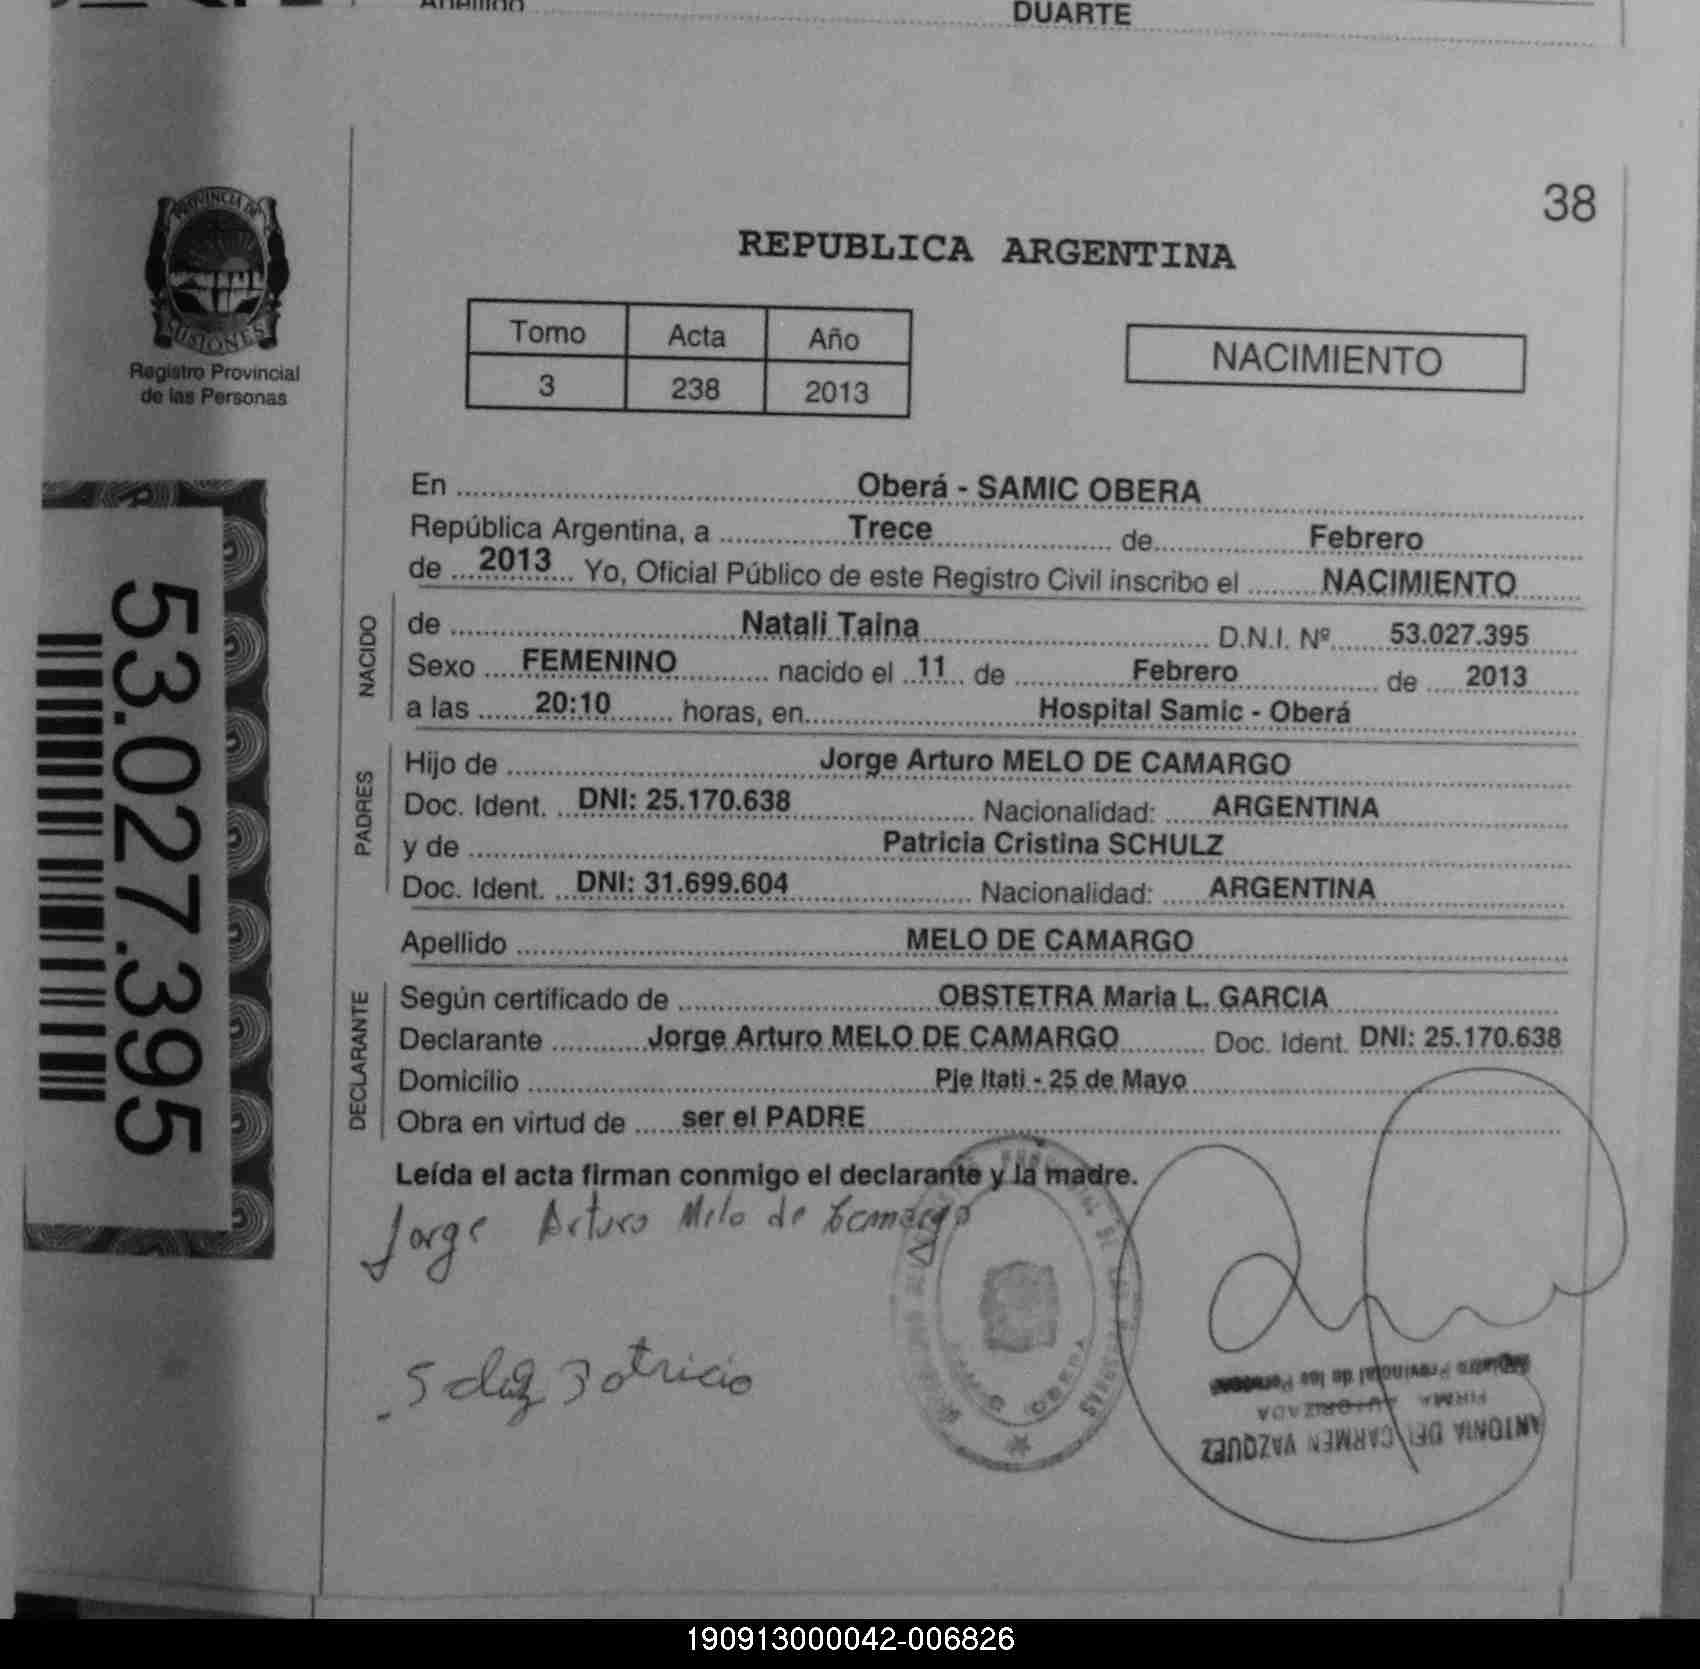 Apellido DUARTE
38
PROVINCIA DE
MISIONES
Registro Provincial
de las Personas
REPUBLICA ARGENTINA
Tomo Acta Año
3 238 2013
NACIMIENTO
53.027.395
En Oberá - SAMIC OBERA
República Argentina, a Trece de Febrero
de 2013 Yo, Oficial Público de este Registro Civil inscribo el NACIMIENTO
NACIDO
de Natali Taina D.N.I. Nº 53.027.395
Sexo FEMENINO nacido el 11 de Febrero de 2013
a las 20:10 horas, en Hospital Samic - Oberá
PADRES
Hijo de Jorge Arturo MELO DE CAMARGO
Doc. Ident. DNI: 25.170.638 Nacionalidad: ARGENTINA
y de Patricia Cristina SCHULZ
Doc. Ident. DNI: 31.699.604 Nacionalidad: ARGENTINA
Apellido MELO DE CAMARGO
DECLARANTE
Según certificado de OBSTETRA Maria L. GARCIA
Declarante Jorge Arturo MELO DE CAMARGO Doc. Ident. DNI: 25.170.638
Domicilio Pje Itati - 25 de Mayo
Obra en virtud de ser el PADRE
Leída el acta firman conmigo el declarante y la madre.
Jorge Arturo Melo de Camargo
OBERA
ANTONIA DEL CARMEN VAZQUEZ
FIRMA AUTORIZADA
Registro Provincial de las Personas
190913000042-006826